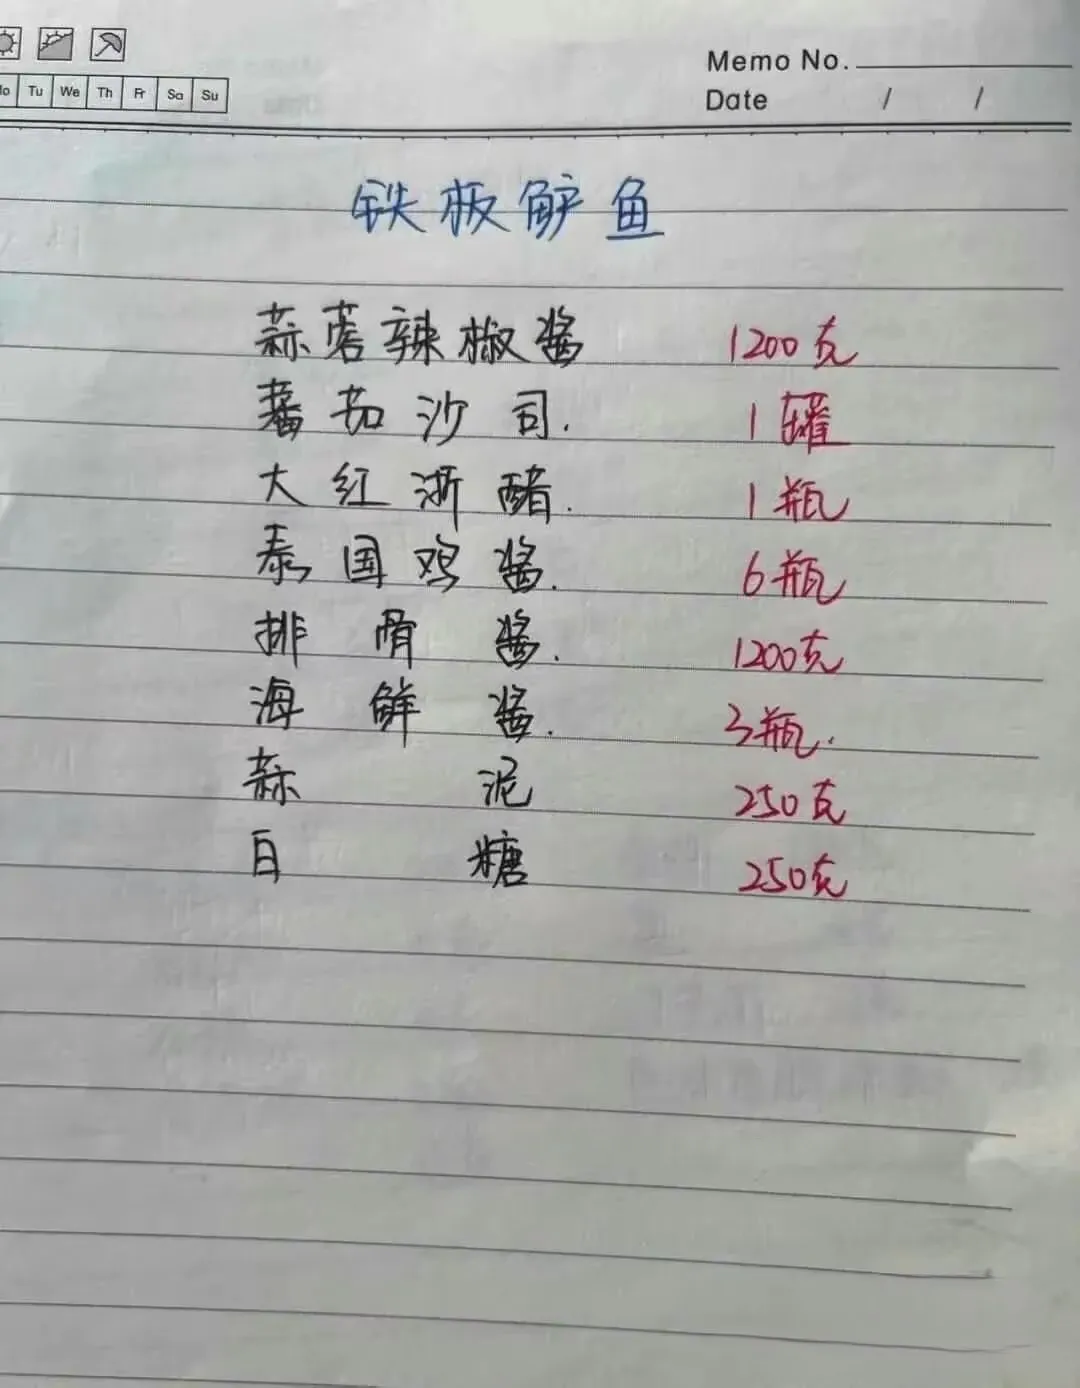 Mo Tu We Th Fr Sa Su
Memo No.
Date / /
铁板鲈鱼
蒜蓉辣椒酱 1200克
蕃茄沙司. 1罐
大红浙醋. 1瓶
泰国鸡酱. 6瓶
排骨酱. 1200克
海鲜酱. 3瓶.
蒜泥 250克
白糖 250克